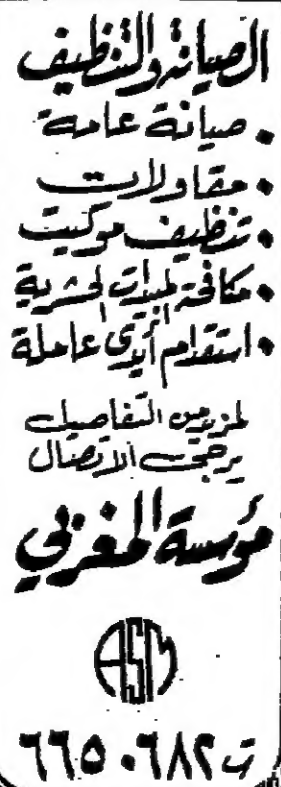 الصيانة والتنظيف
• صيانة عامة
• مقاولات
• تنظيف موكيت
• مكافحة المبيدات الحشرية
• استقدام أيدي عاملة
لمزيد من التفاصيل
يرجى الاتصال
مؤسسة المغربي
ASM
ت ٦٦٥٠٦٨٢